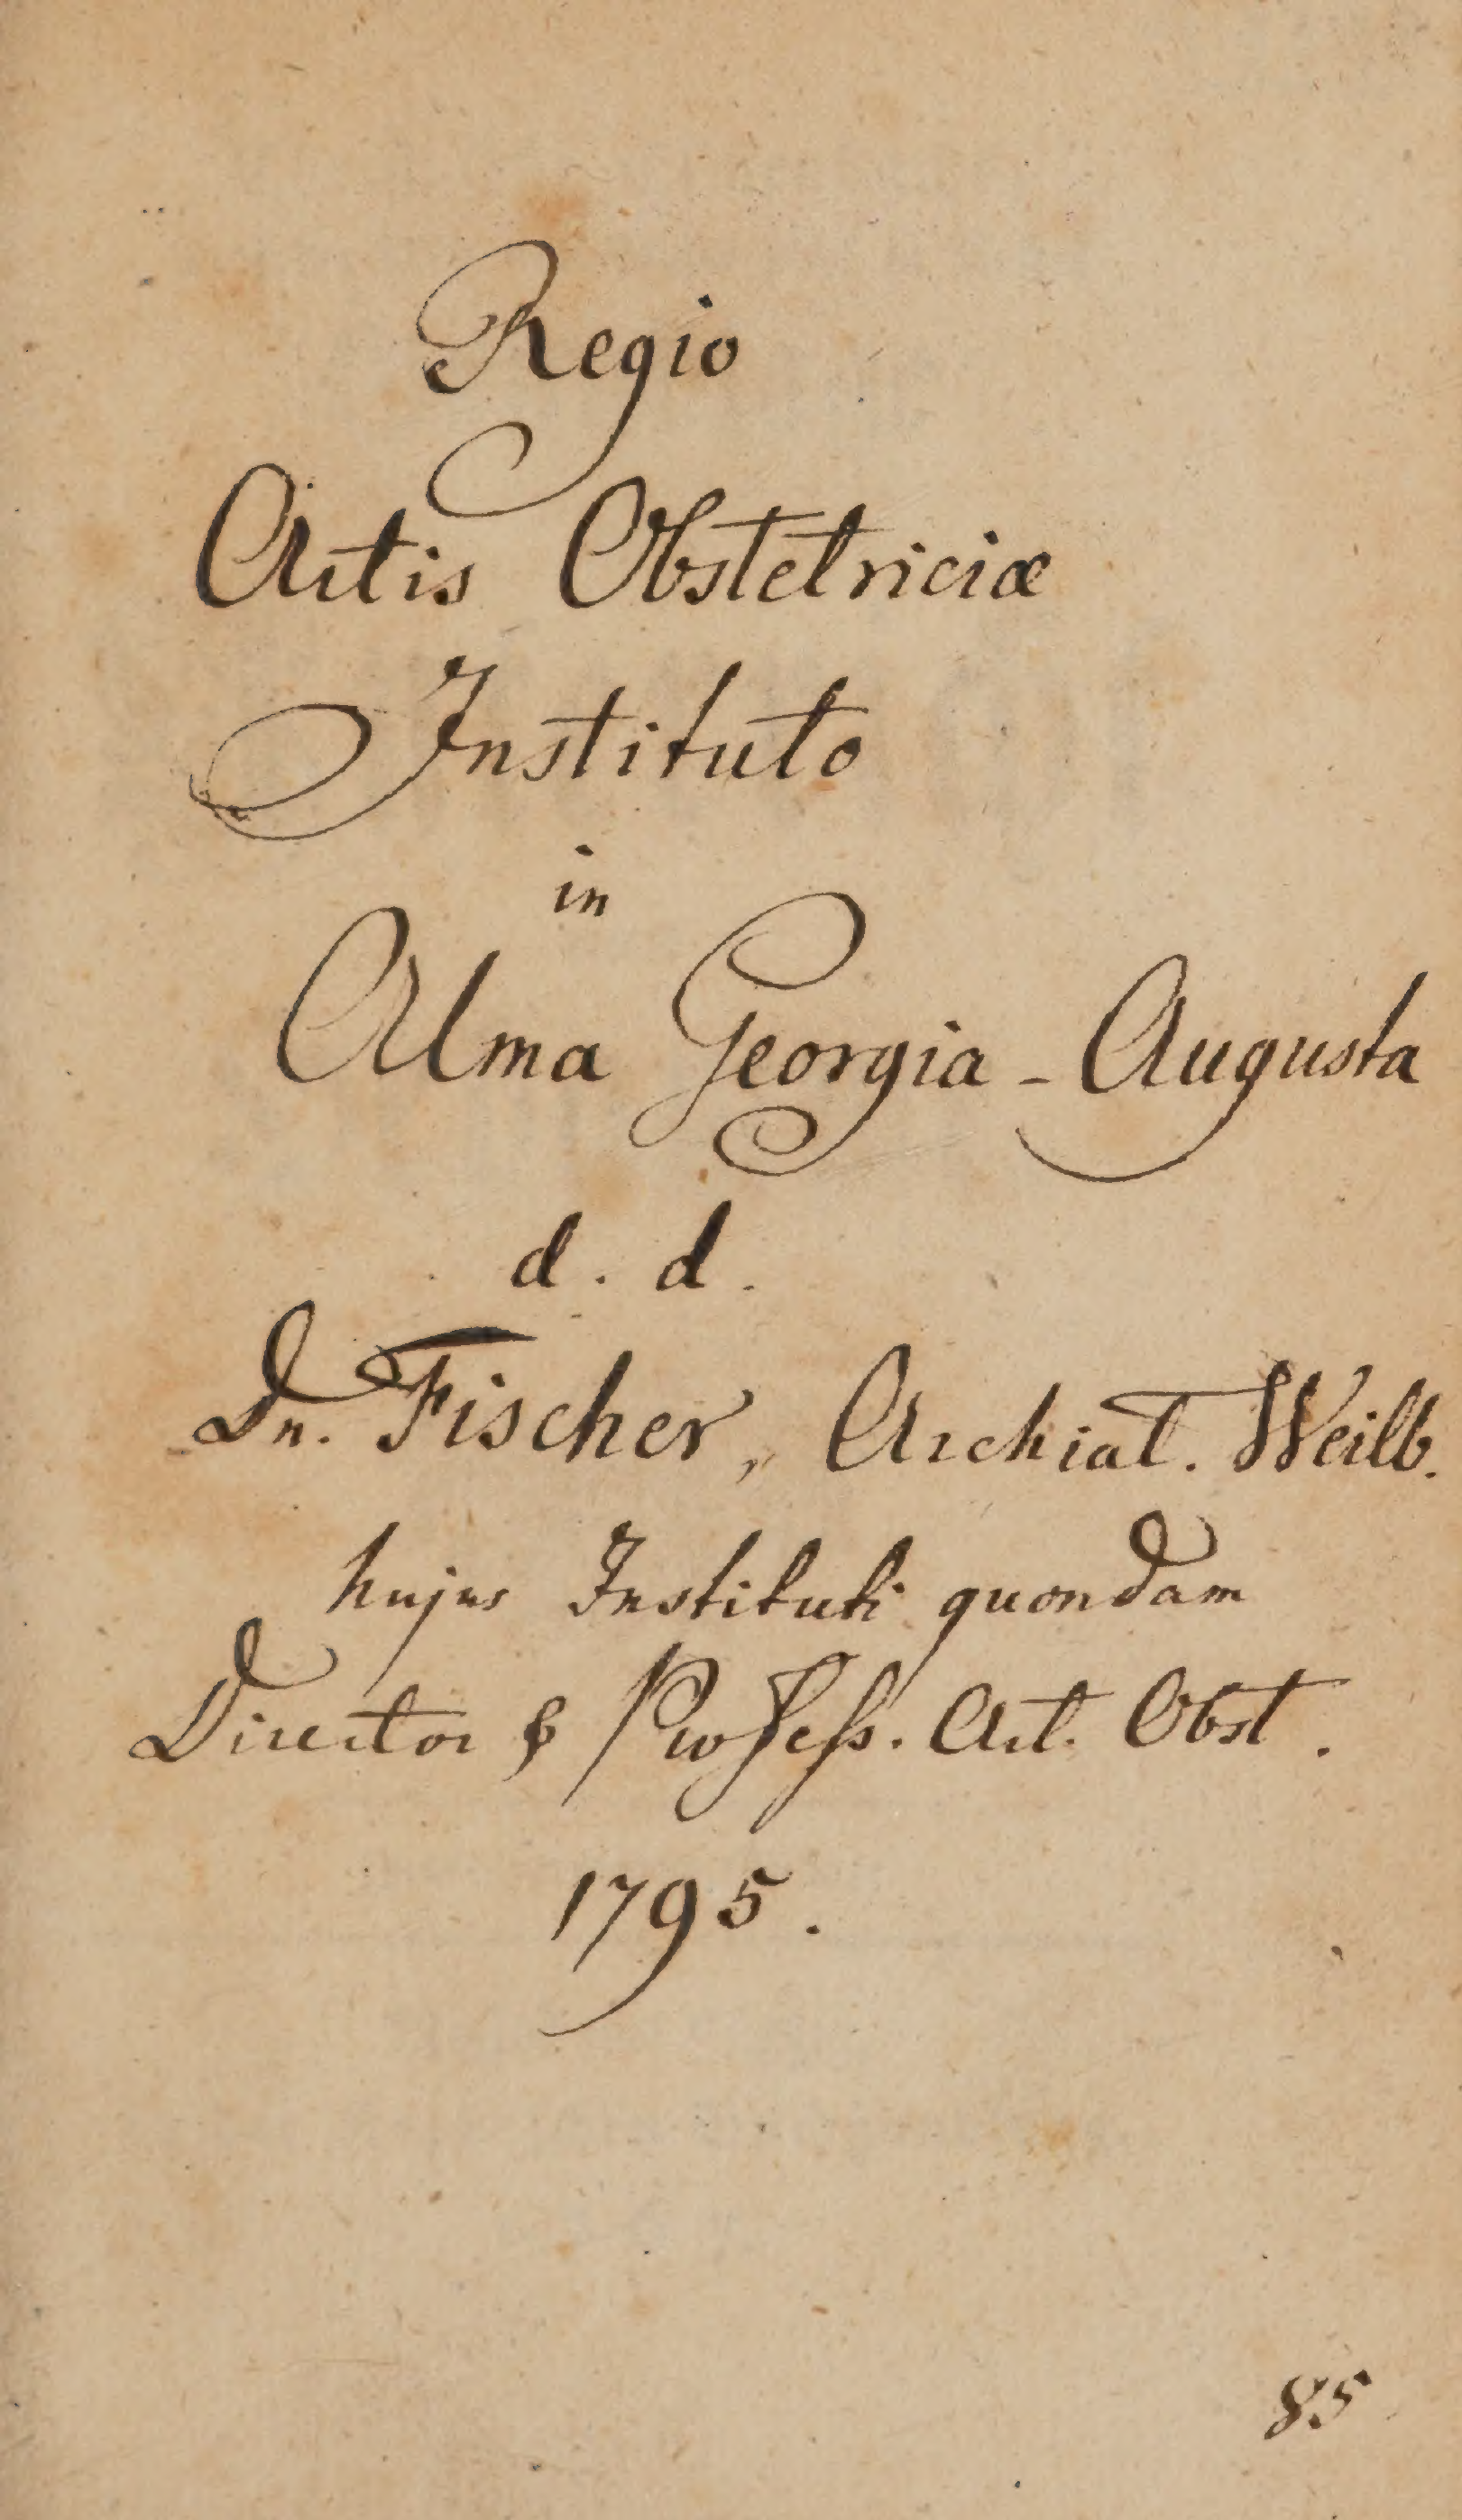 Regio
Artis Obstetriciæ
Instituto
in
Alma Georgia-Augusta
d. d.
Dr. Fischer, Archiat. Weilb.
hujus Instituti quondam
Director & Profess. Art. Obst.
1795.
85